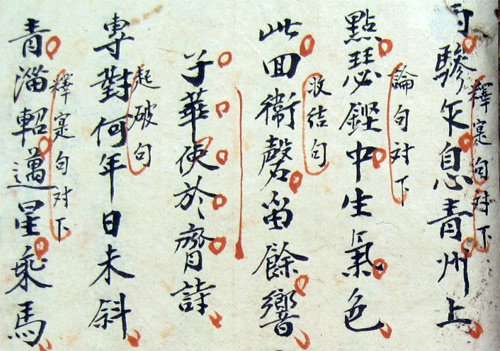 釋寔句对下
驂乍息青州上
論句对下
點瑟鏗中生氣色
收结句
此回衛磬留餘響
子華使於齊詩
起破句
專對何年日未斜
釋寔句对下
青淄軺邁星乘馬